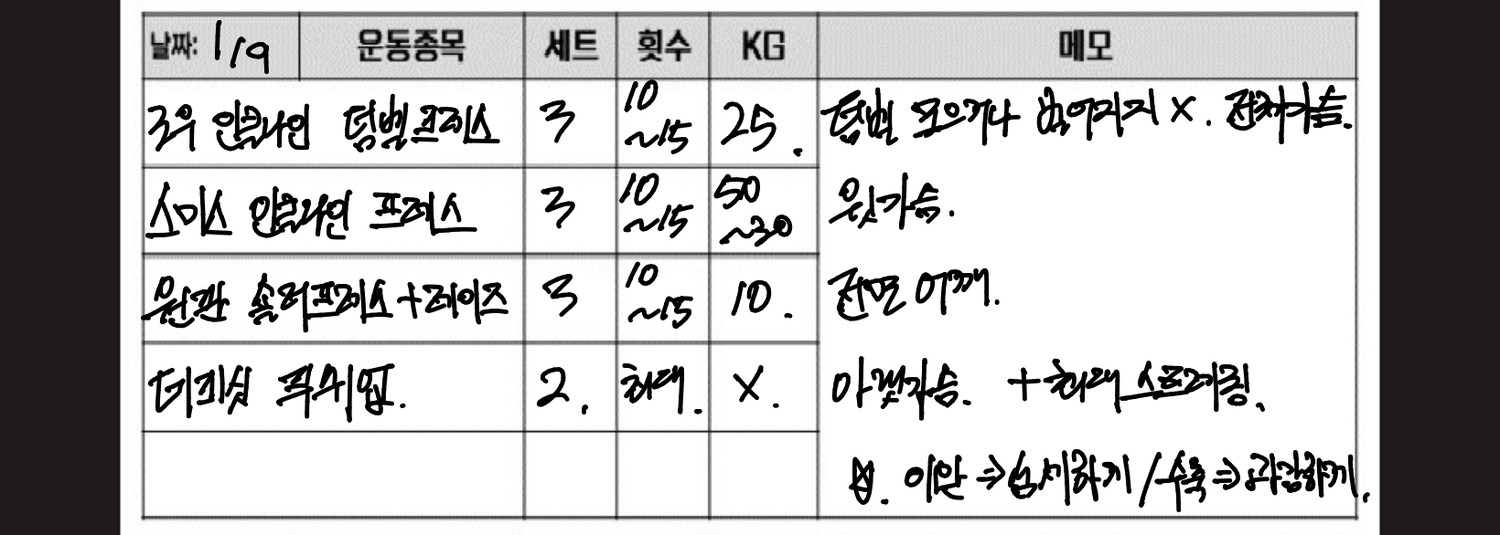 날짜: 1/9 운동종목 세트 횟수 KG 메모
로우 인클라인 덤벨프레스 3 10~15 25. 덤벨 모으거나 벌어지지 X. 전체가슴.
스미스 인클라인 프레스 3 10~15 50~30 윗가슴.
원판 숄더프레스+레이즈 3 10~15 10. 전면 어깨.
더키싯 푸쉬업. 2. 최대. X. 아랫가슴. +최대 스트레칭.
이완 ⇒ 섬세하게 / 수축 ⇒ 과감하게.